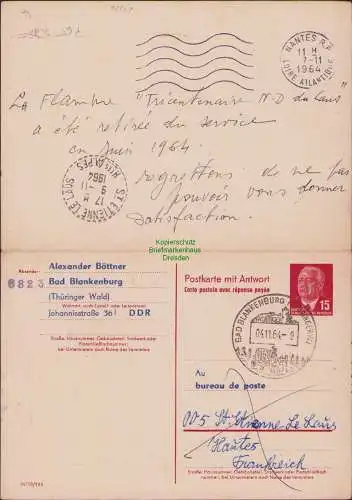 NANTES R.P.
11 H
7-11
1964
LOIRE ATLANTIQUE
La Flamme "Tricentenaire N-D du Laus"
a été retirée du service
en Juin 1964.
regrettons de ne pas
pouvoir vous donner
satisfaction.
ST ETIENNE LE LAUS
17 H
9 -11
1964
HTES ALPES
Kopierschutz
Briefmarkenhaus
Dresden
Absender:
Alexander Böttner
6823
Bad Blankenburg
(Thüringer Wald)
Wohnort, auch Zustell- oder Leitpostamt
Johannisstraße 36 I DDR
Straße, Hausnummer, Gebäudeteil, Stockwerk oder
Postschließfachnummer;
bei Untermietern auch Name des Vermieters
Postkarte mit Antwort
Carte postale avec réponse payée
15
BAD BLANKENBURG
04.11.64-9
Au
bureau de poste
005 St. Etienne Le Laus
Hautes
Frankreich
Straße, Hausnummer, Gebäudeteil, Stockwerk oder Postschließfachnummer;
bei Untermietern auch Name des Vermieters